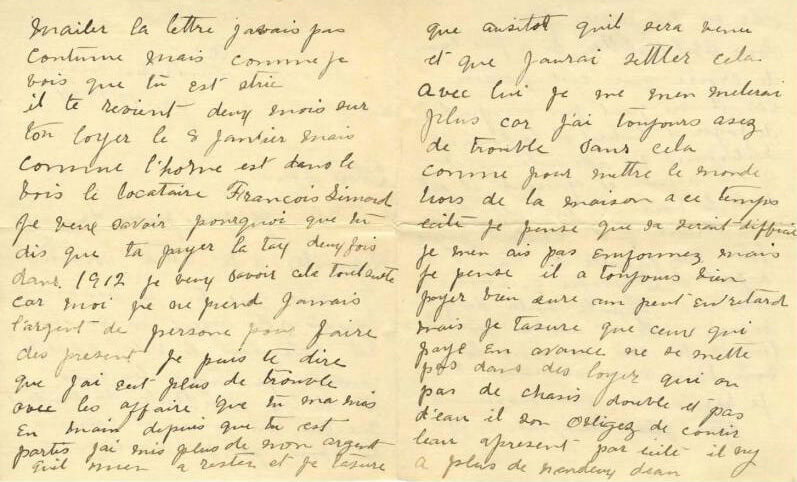 mailer la lettre javais pas
coutume mais comme je
vois que tu est stric
il te revient deux mois sur
ton loyer le 8 Janvier mais
comme l'home est dans le
bois le locataire François Simard
Je veux savoir pourquoi que tu
dis que ta payer la tax deux fois
dans 1912 je veux savoir cela tout suite
car moi je ne prend Jamais
l'argent de persone pour faire
des present Je puis te dire
que j'ai eut plus de trouble
avec les affaire que tu ma mis
En main depuis que tu est
partis j'ai mis plus de mon argent
quil men a rester et je tasure
que ausitot quil sera venu
et que Jaurai settler cela
avec lui Je me men melerai
plus car j'ai toujours asez
de trouble sans cela
comme pour mettre le monde
hors de la maison a ce temps
icite Je pense que sa serait difficile
je men ais pas enformez mais
Je pense il a toujours bien
payer bien sure un peut En retard
mais Je tasure que ceux qui
paye En avance ne se mette
pas dans des loyer qui on
pas de chasis double et pas
d'eau il son obligez de courir
leau apresent par icite il ny
a plus de